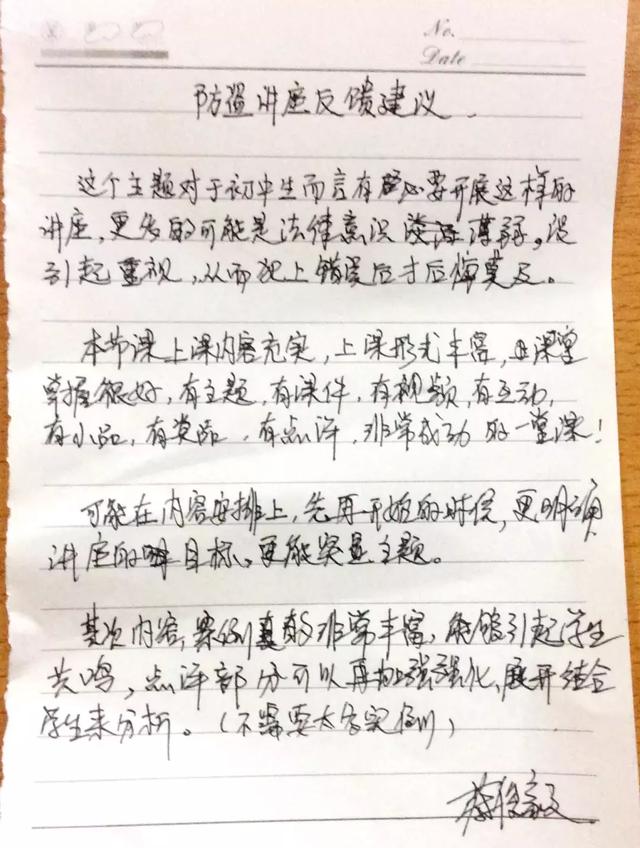 No.
Date
防盗讲座反馈建议.
这个主题对于初中生而言有必要开展这样的
讲座,更多的可能是法律意识薄弱。没
引起重视,从而犯上错误后才后悔莫及。
本节课上课内容充实,上课形式丰富,且课堂
掌握很好,有主题,有课件,有视频,有互动,
有小品,有奖品,有点评,非常成功的一堂课!
可能在内容安排上,先再开始的时候,更明确
讲座的目标。更能突显主题。
其次内容,案例真的非常丰富,能够引起学生
共鸣,点评部分可以再加强强化,展开结合
学生来分析。(不需要太多实例)